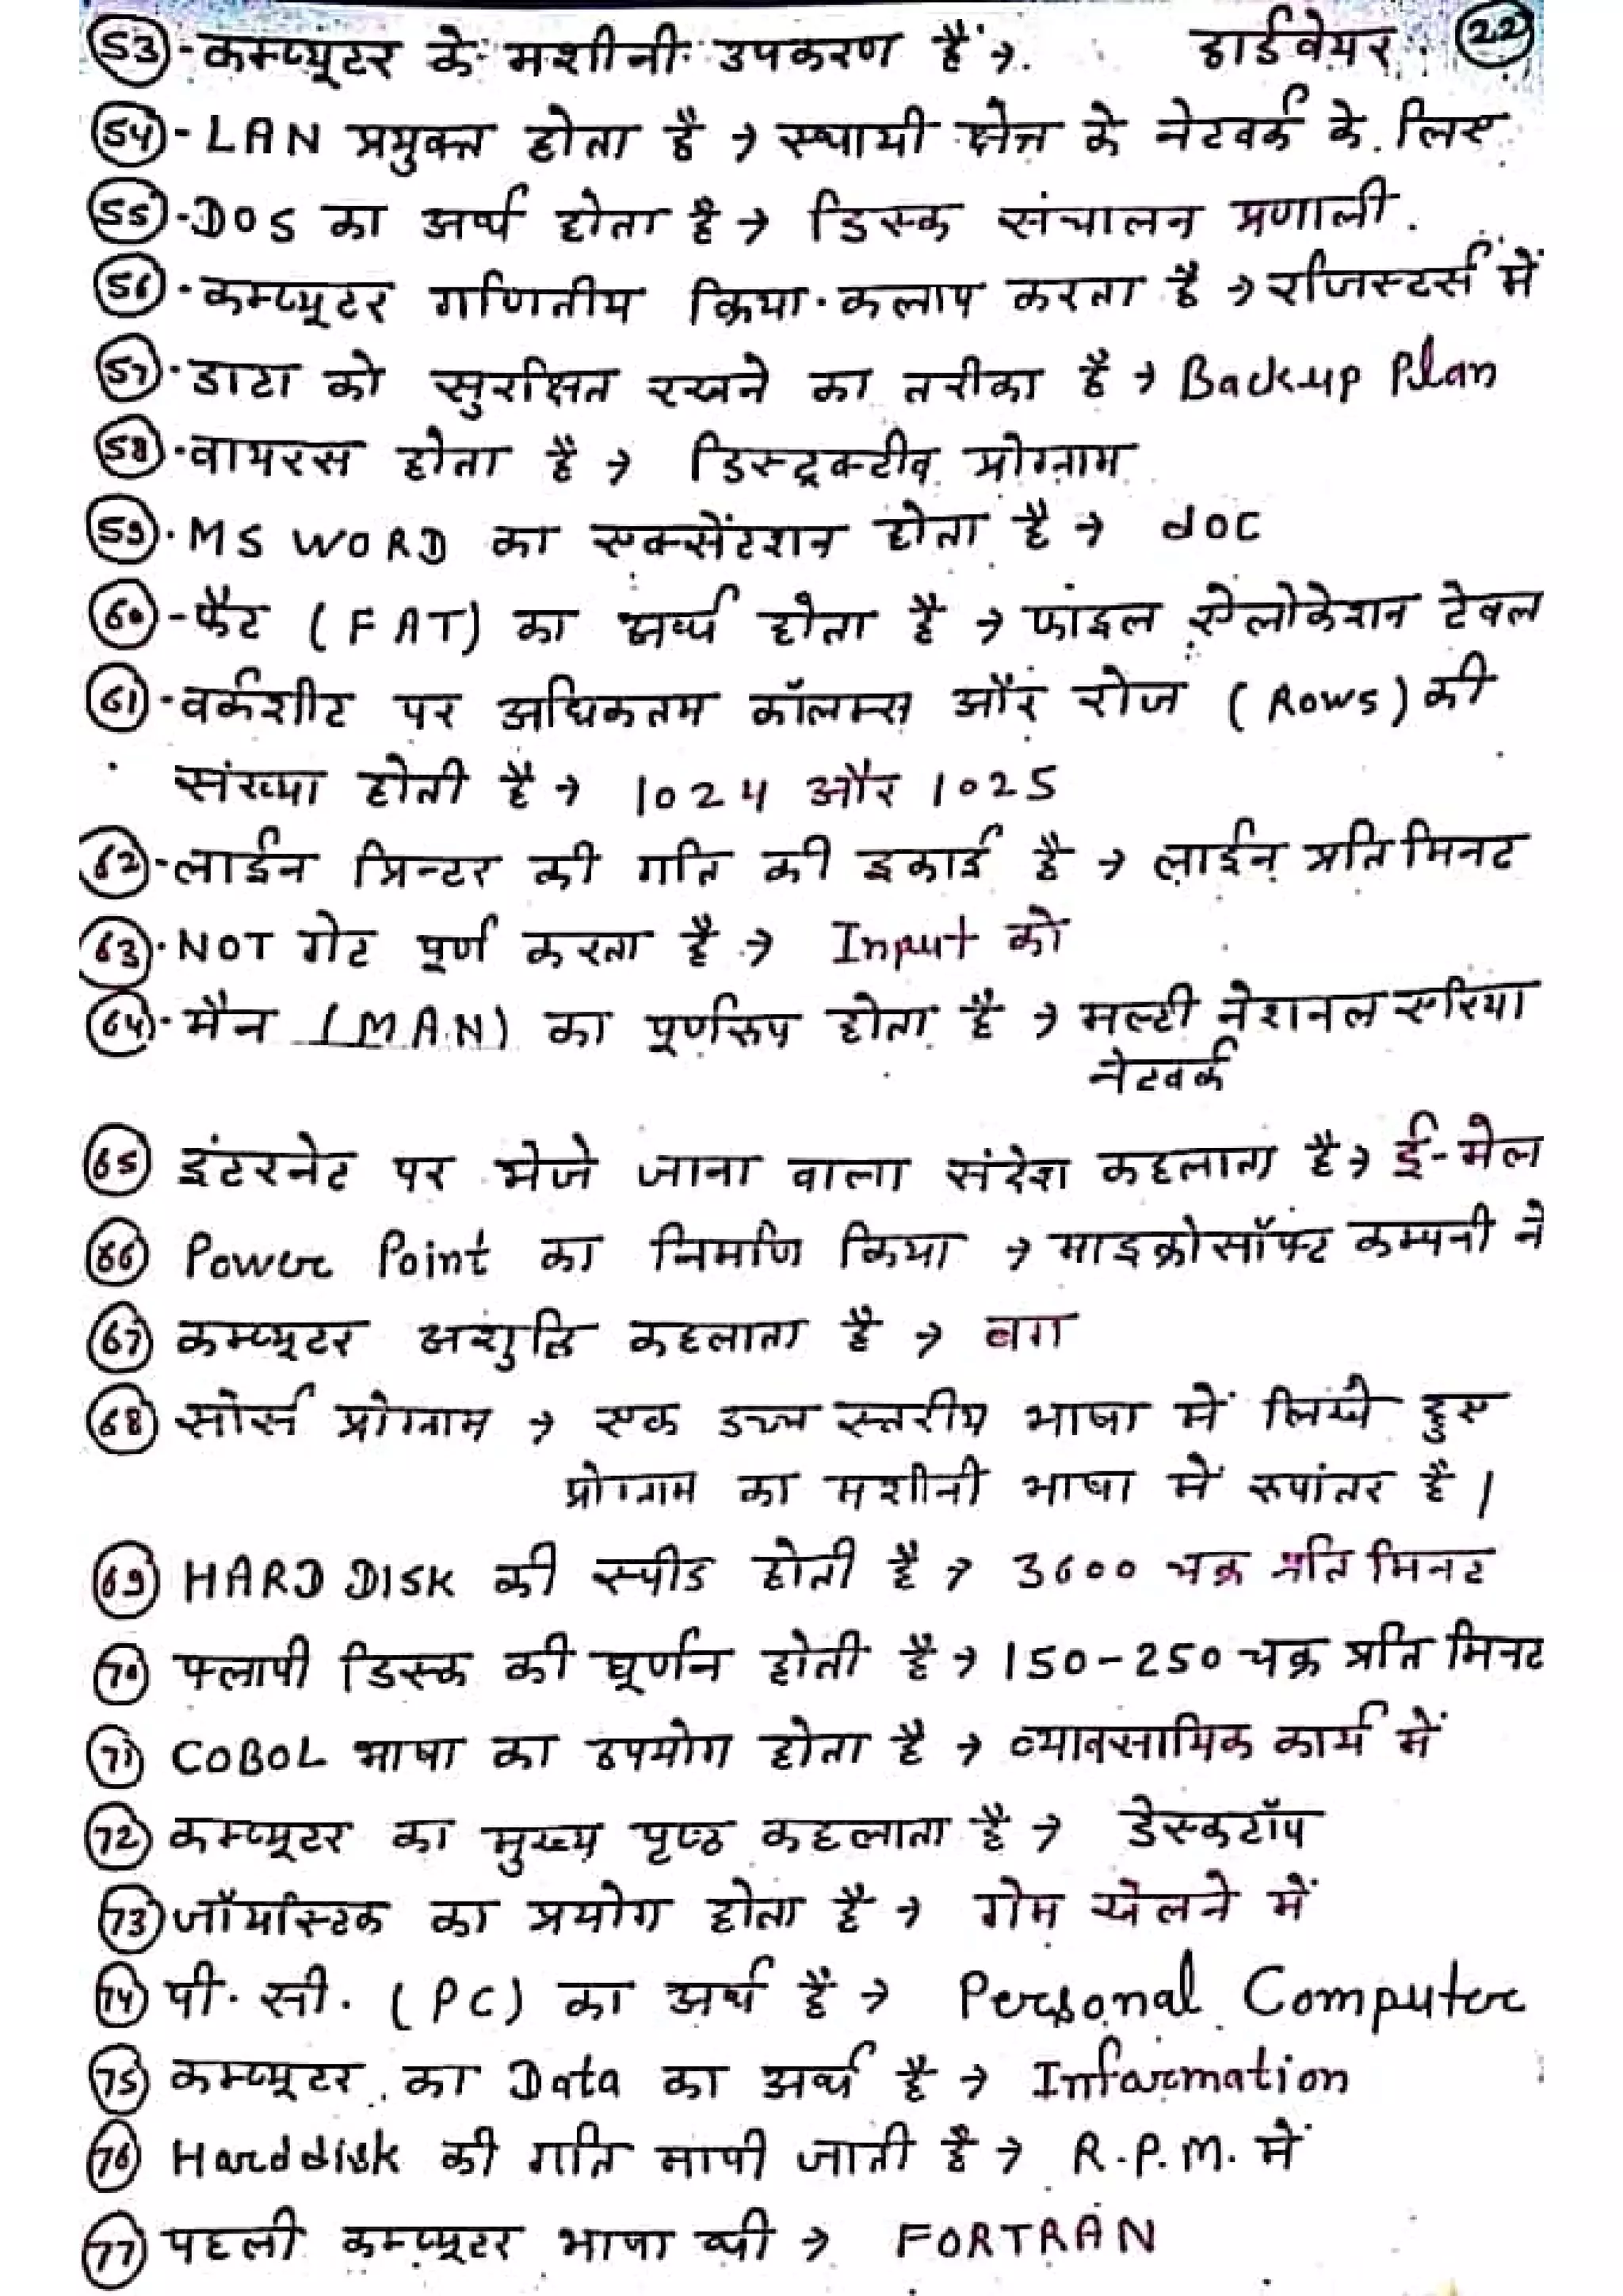 53 - कम्प्यूटर के मशीनी उपकरण हैं → हार्डवेयर 22
54 - LAN प्रयुक्त होता है → स्थायी क्षेत्र के नेटवर्क के लिए
55 - DOS का अर्थ होता है → डिस्क संचालन प्रणाली.
56 - कम्प्यूटर गणितीय क्रिया-कलाप करता है → रजिस्टर्स में
57 - डाटा को सुरक्षित रखने का तरीका है → Back-up Plan
58 - वायरस होता है → डिस्ट्रक्टीव प्रोग्राम
59 - MS WORD का एक्सेंटशन होता है → doc
60 - फैट (FAT) का अर्थ होता है → फाइल ऐलोकेशन टेबल
61 - वर्कशीट पर अधिकतम कॉलम्स और रोज (Rows) की
संख्या होती है → 1024 और 1025
62 - लाईन प्रिन्टर की गति की इकाई है → लाईन प्रति मिनट
63 - NOT गेट पूर्ण करता है → Input को
64 - मैन (MAN) का पूर्णरूप होता है → मल्टी नेशनल एरिया
नेटवर्क
65 इंटरनेट पर भेजे जाना वाला संदेश कहलाता है → ई-मेल
66 Power Point का निर्माण किया → माइक्रोसॉफ्ट कम्पनी ने
67 कम्प्यूटर अशुद्धि कहलाता है → बग
68 सोर्स प्रोग्राम → एक उच्च स्तरीय भाषा में लिखे हुए
प्रोग्राम का मशीनी भाषा में रूपांतर है।
69 HARD DISK की स्पीड होती है → 3600 चक्र प्रति मिनट
70 फ्लापी डिस्क की घूर्णन होती है → 150-250 चक्र प्रति मिनट
71 COBOL भाषा का उपयोग होता है → व्यावसायिक कार्य में
72 कम्प्यूटर का मुख्य पृष्ठ कहलाता है → डेस्कटॉप
73 जॉयस्टिक का प्रयोग होता है → गेम खेलने में
74 पी. सी. (PC) का अर्थ है → Personal Computer
75 कम्प्यूटर का Data का अर्थ है → Information
76 Harddisk की गति मापी जाती है → R.P.M. में
77 पहली कम्प्यूटर भाषा थी → FORTRAN